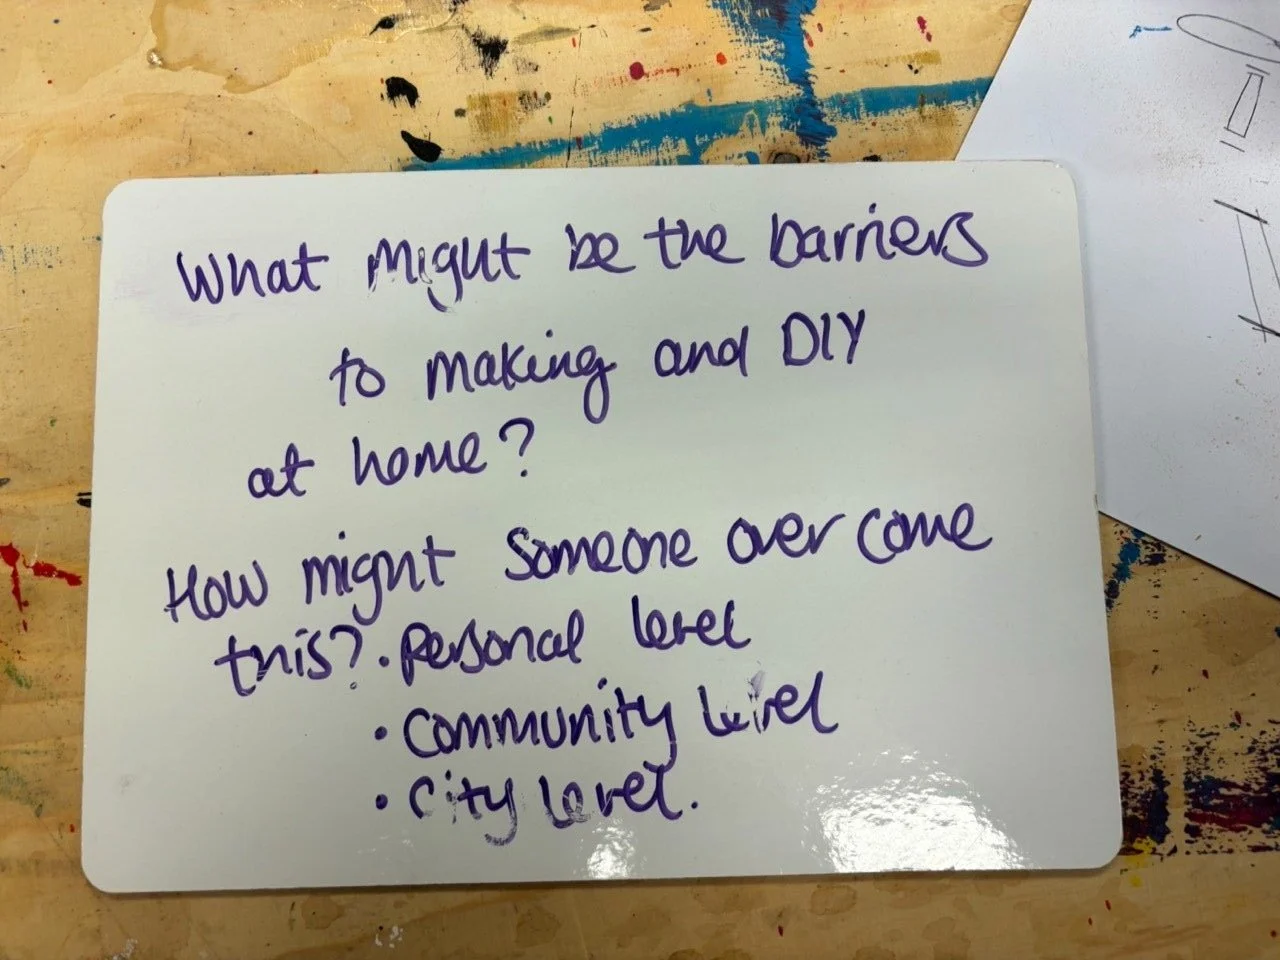 What might be the barriers
to making and DIY
at home?
How might someone over come
this? • Personal level
• Community level
• City level.